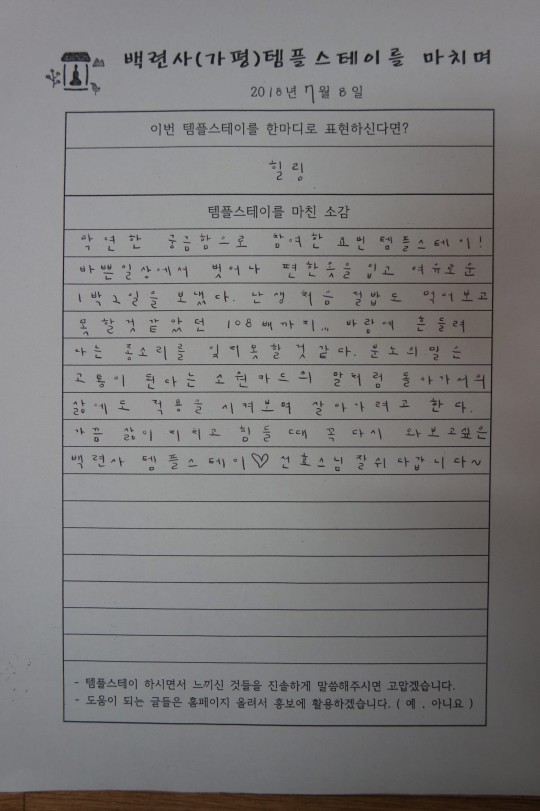 백련사(가평)템플스테이를 마치며
2018년 7월 8일
이번 템플스테이를 한마디로 표현하신다면?
힐링
템플스테이를 마친 소감
막연한 궁금함으로 참여한 요번 템플스테이!
바쁜일상에서 벗어나 편한옷을 입고 여유로운
1박2일을 보냈다. 난생 처음 절밥도 먹어보고
못할것같았던 108배까지... 바람에 흔들려
나는 종소리를 잊지못할것 같다. 분노의 말은
고통이 된다는 소원카드의 말처럼 돌아가서의
삶에도 적용을 시켜보며 살아가려고 한다.
가끔 삶이 지치고 힘들 때 꼭 다시 와보고싶은
백련사 템플스테이♡ 선효스님 잘쉬다갑니다~
- 템플스테이 하시면서 느끼신 것들을 진솔하게 말씀해주시면 고맙겠습니다.
- 도움이 되는 글들은 홈페이지 올려서 홍보에 활용하겠습니다. ( 예 , 아니요 )